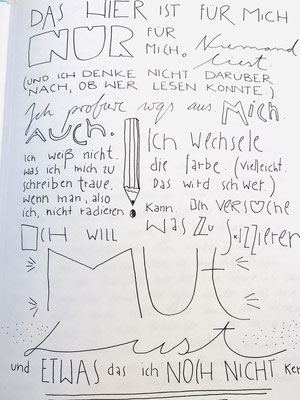 DAS HIER IST FÜR MICH
NUR FÜR MICH. Niemand liest
(UND ICH DENKE NICHT DARÜBER
NACH, OB WER LESEN KÖNNTE)
Ich probiere was aus. Mich.
AUCH.
Ich weiß nicht.
was ich mich zu
schreiben traue.
wenn man, also
ich, nicht radieren
Ich Wechsele
die farbe. (vielleicht.
Das wird schwer.)
Kann. Ich versuche
ICH WILL was zu skizzieren
MUt
Lust
und ETWAS das ich NOCH NICHT